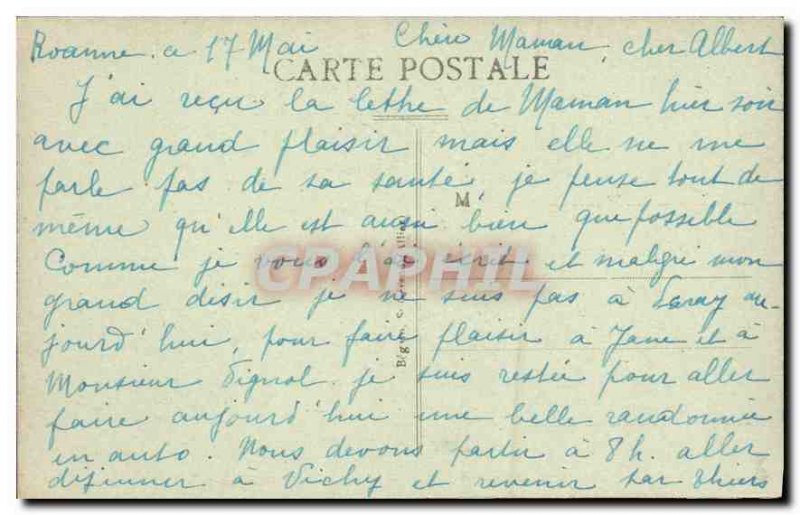 Roanne. a 17 Mai Chère Maman, cher Albert
CARTE POSTALE
J'ai reçu la lettre de Maman hier soir
avec grand plaisir mais elle ne me
parle pas de sa santé, je pense tout de
M
même qu'elle est aussi bien que possible
Comme je vous l'ai écrit et malgré mon
CPAPHIL
grand désir je ne suis pas à Paray au-
jourd'hui, pour faire plaisir à Jane et à
Monsieur Vignol je suis restée pour aller
faire aujourd'hui une belle randonnée
en auto. Nous devons partir à 8h. aller
déjeuner à Vichy et revenir par Thiers